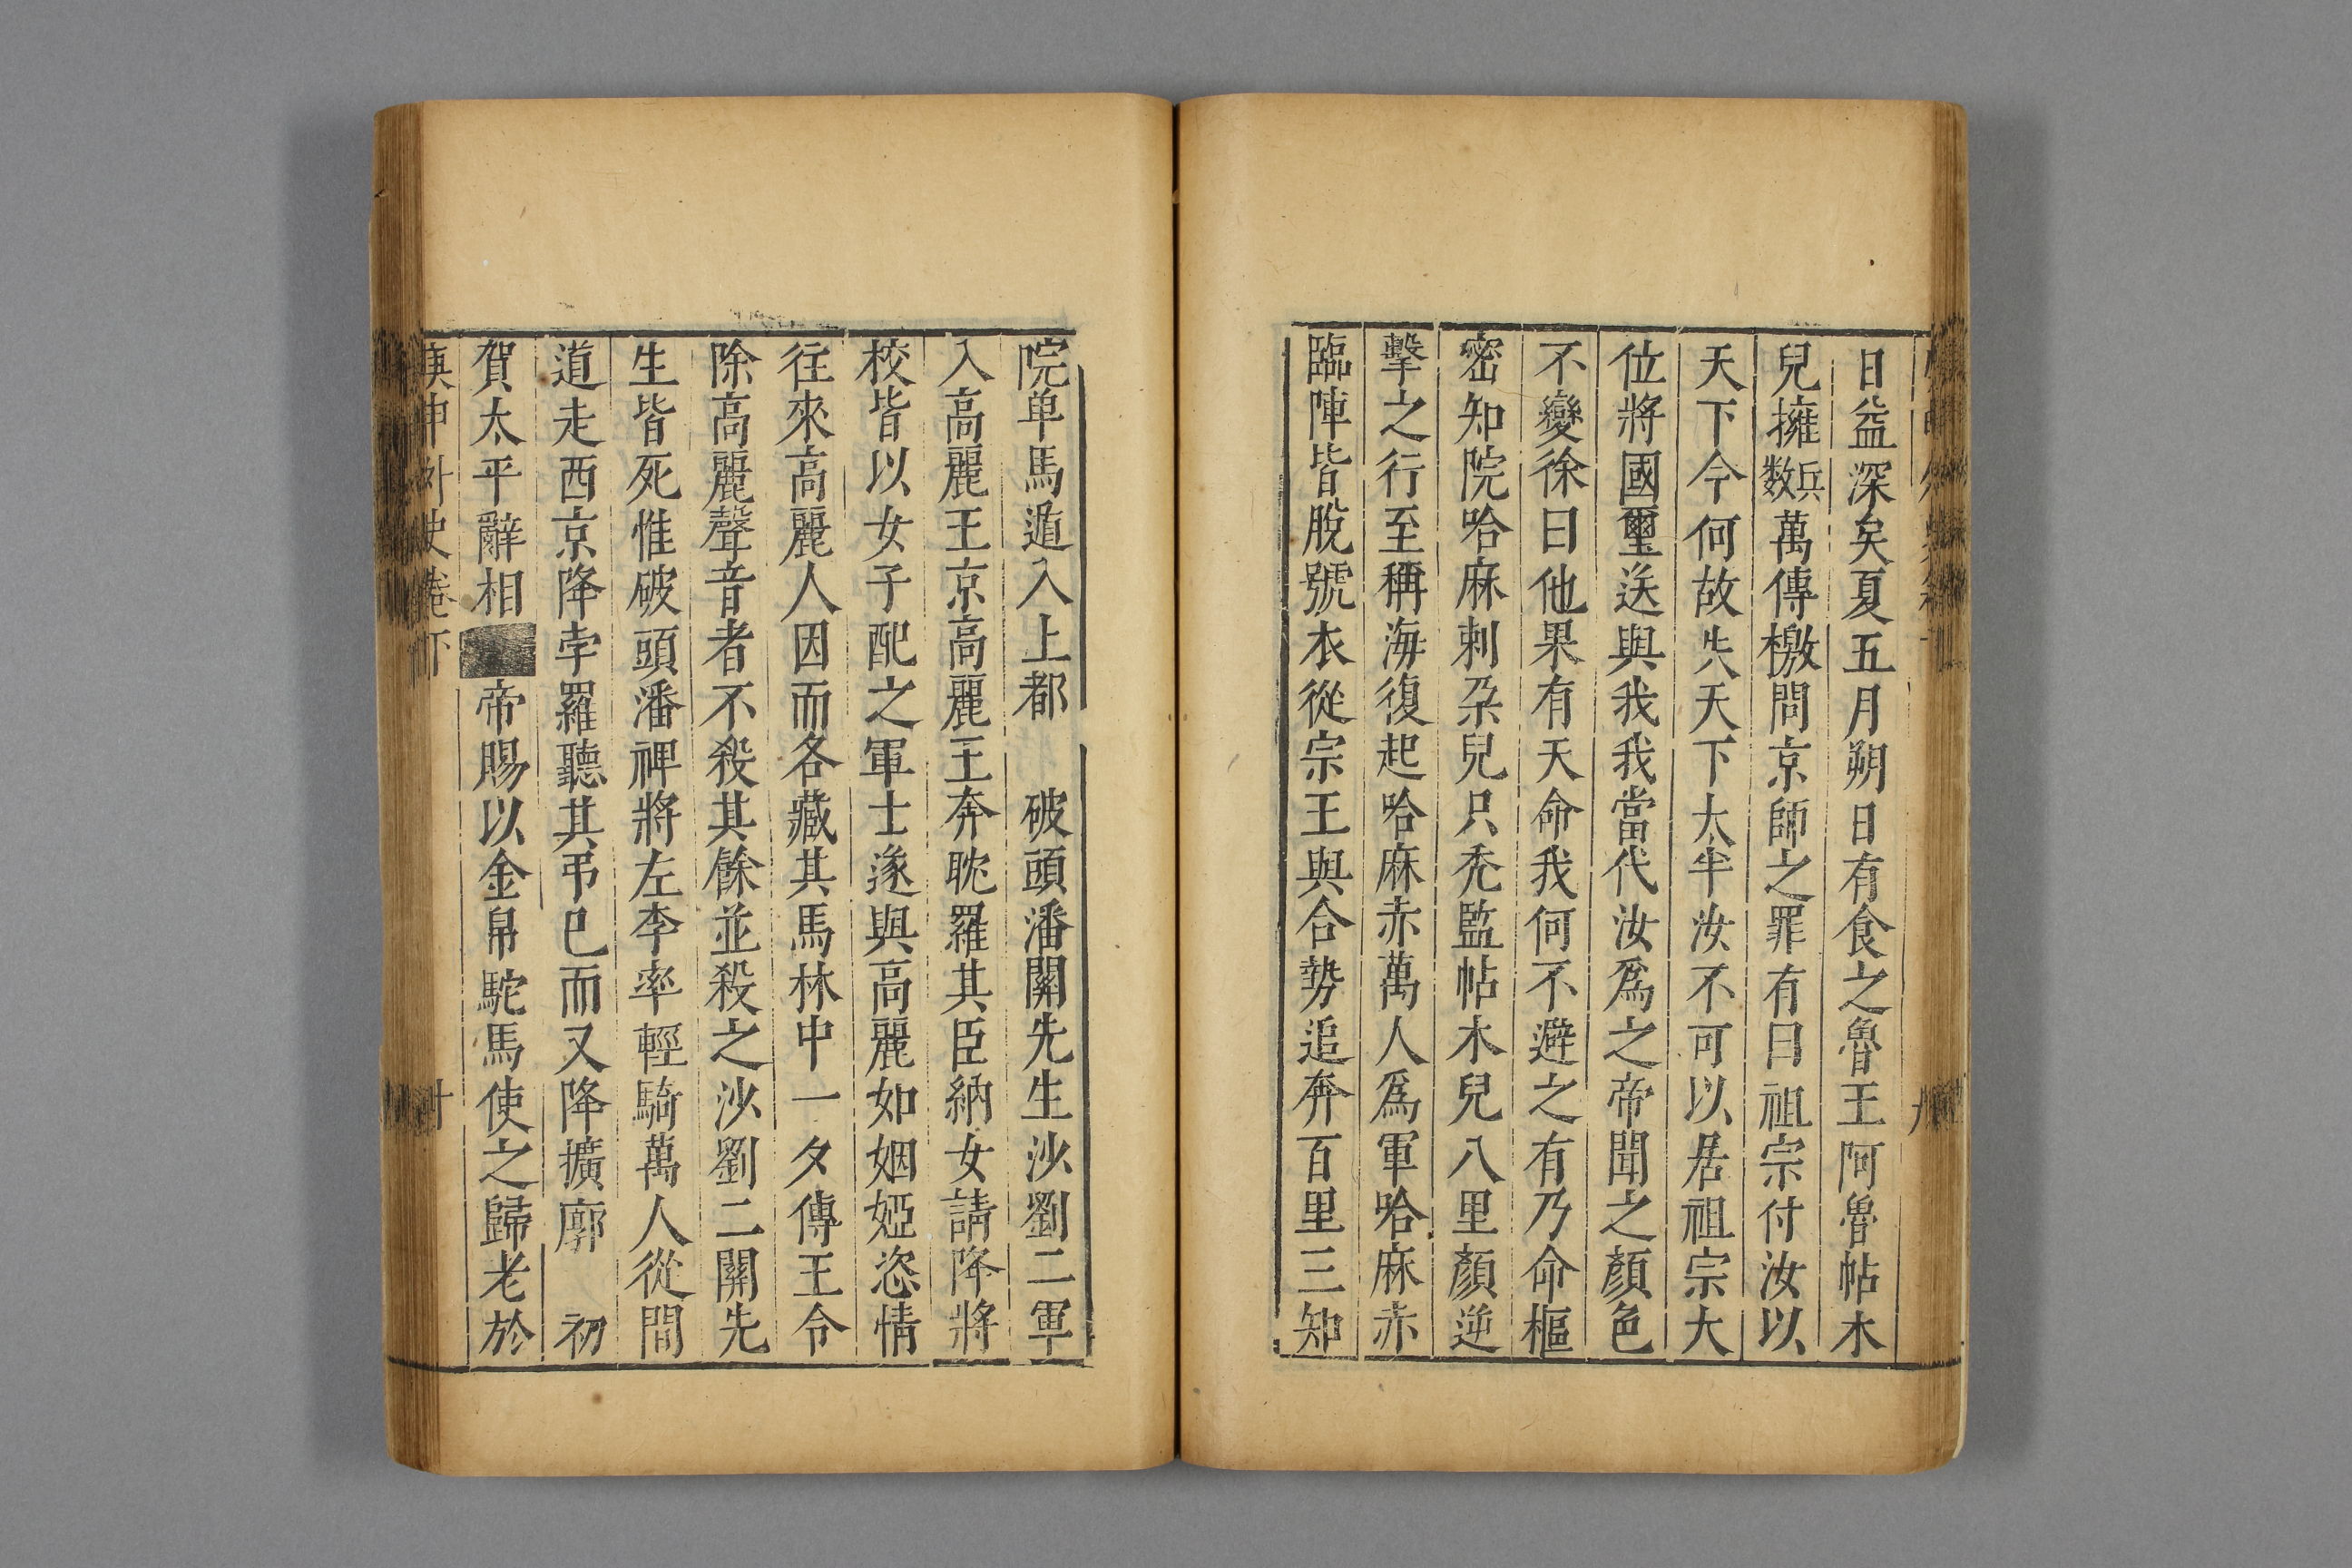 日益深矣夏五月朔日有食之魯王阿魯帖木
兒擁兵数萬傳檄問京師之罪有曰祖宗付汝以
天下今何故失天下太半汝不可以居祖宗大
位將國璽送與我我當代汝爲之帝聞之顏色
不變徐曰他果有天命我何不避之有乃命樞
密知院哈麻剌朶兒只禿監帖木兒八里顏逆
擊之行至稱海復起哈麻赤萬人爲軍哈麻赤
臨陣皆脫號衣從宗王與合勢追奔百里三知
院单馬遁入上都 破頭潘關先生沙劉二軍
入高麗王京高麗王奔耽羅其臣納女請降將
校皆以女子配之軍士遂與高麗如姻婭恣情
往來高麗人因而各藏其馬林中一夕傳王令
除高麗聲音者不殺其餘並殺之沙劉二關先
生皆死惟破頭潘裨將左李率輕騎萬人從間
道走西京降孛羅聽其弔已而又降擴廓 初
賀太平辭相 帝賜以金帛駝馬使之歸老於
庚申外史卷下 十